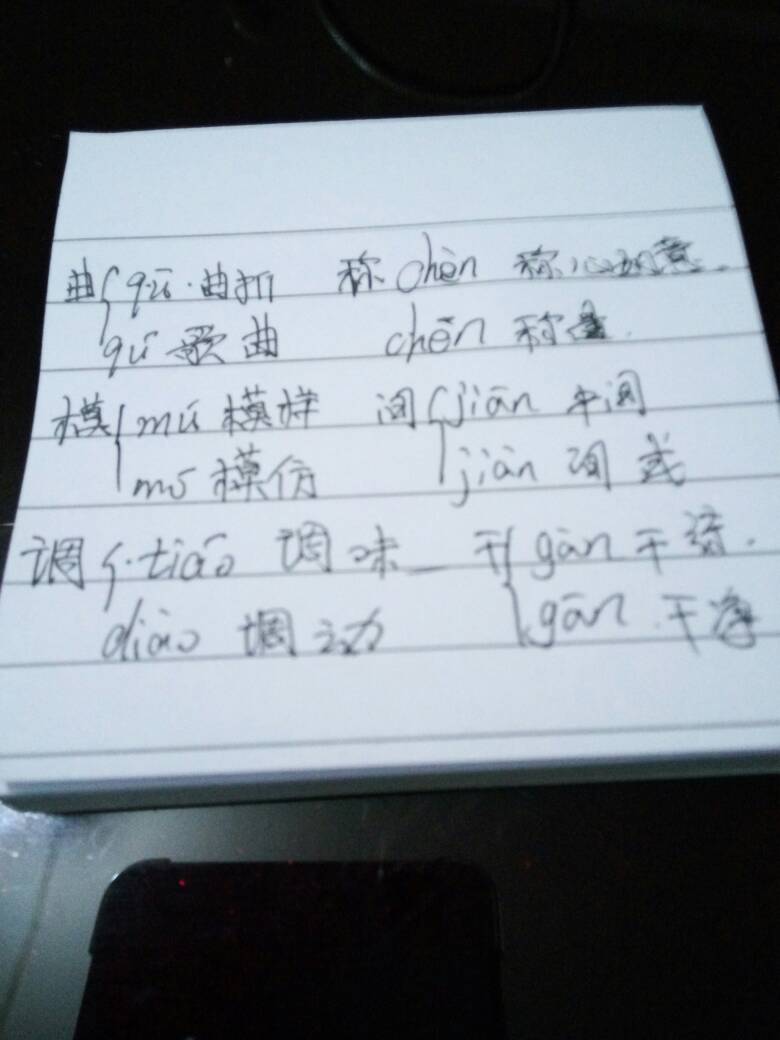 曲{qū·曲折 称 chèn 称心如意.
qǔ 歌曲 chēn 称量.
模{mú 模样 间{jiān 中间
mó 模仿 jiàn 间或
调{·tiáo 调味 干{gàn 干活.
diào 调动 gān 干净